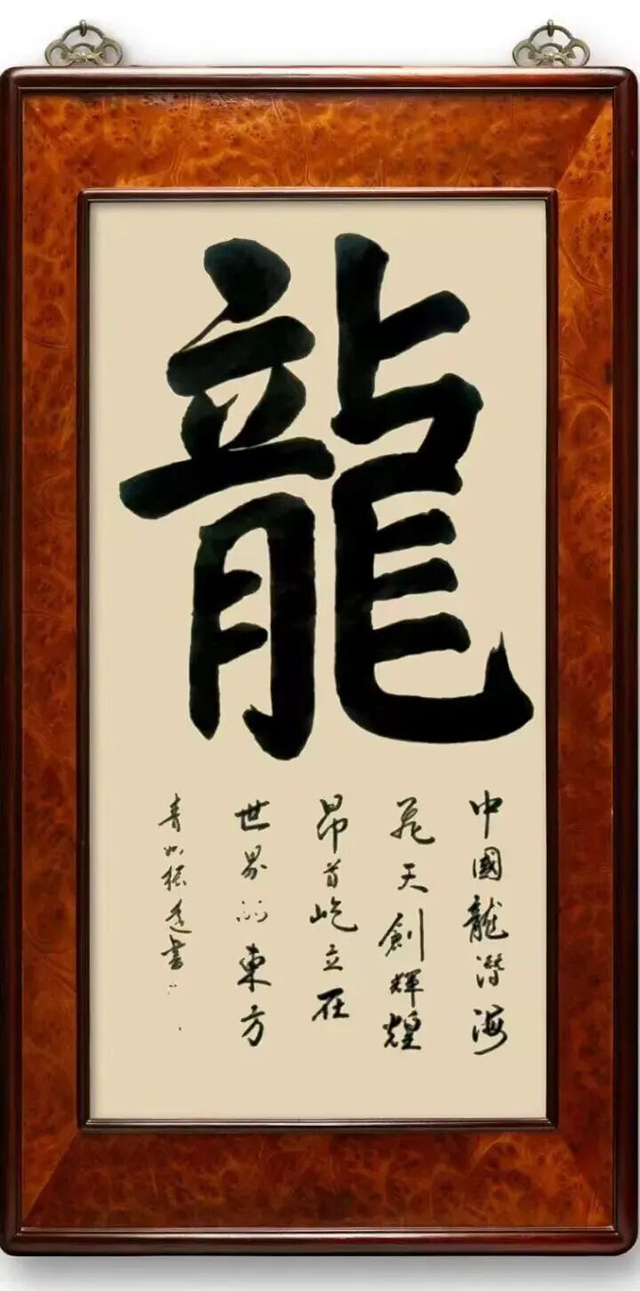 龍
中國龍潛海
飛天創輝煌
昂首屹立在
世界的東方
書